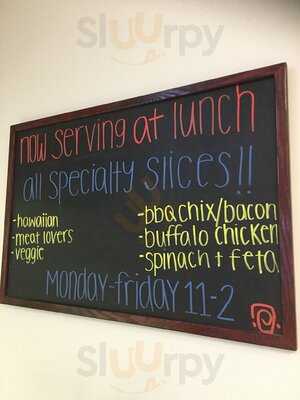 Sluurpy
now serving at lunch
all specialty slices!!
-hawaiian
-meat lovers
-veggie
-bbq chix/bacon
-buffalo chicken
-spinach + feta
Monday-friday 11-2
Sluurpy
Sluurpy